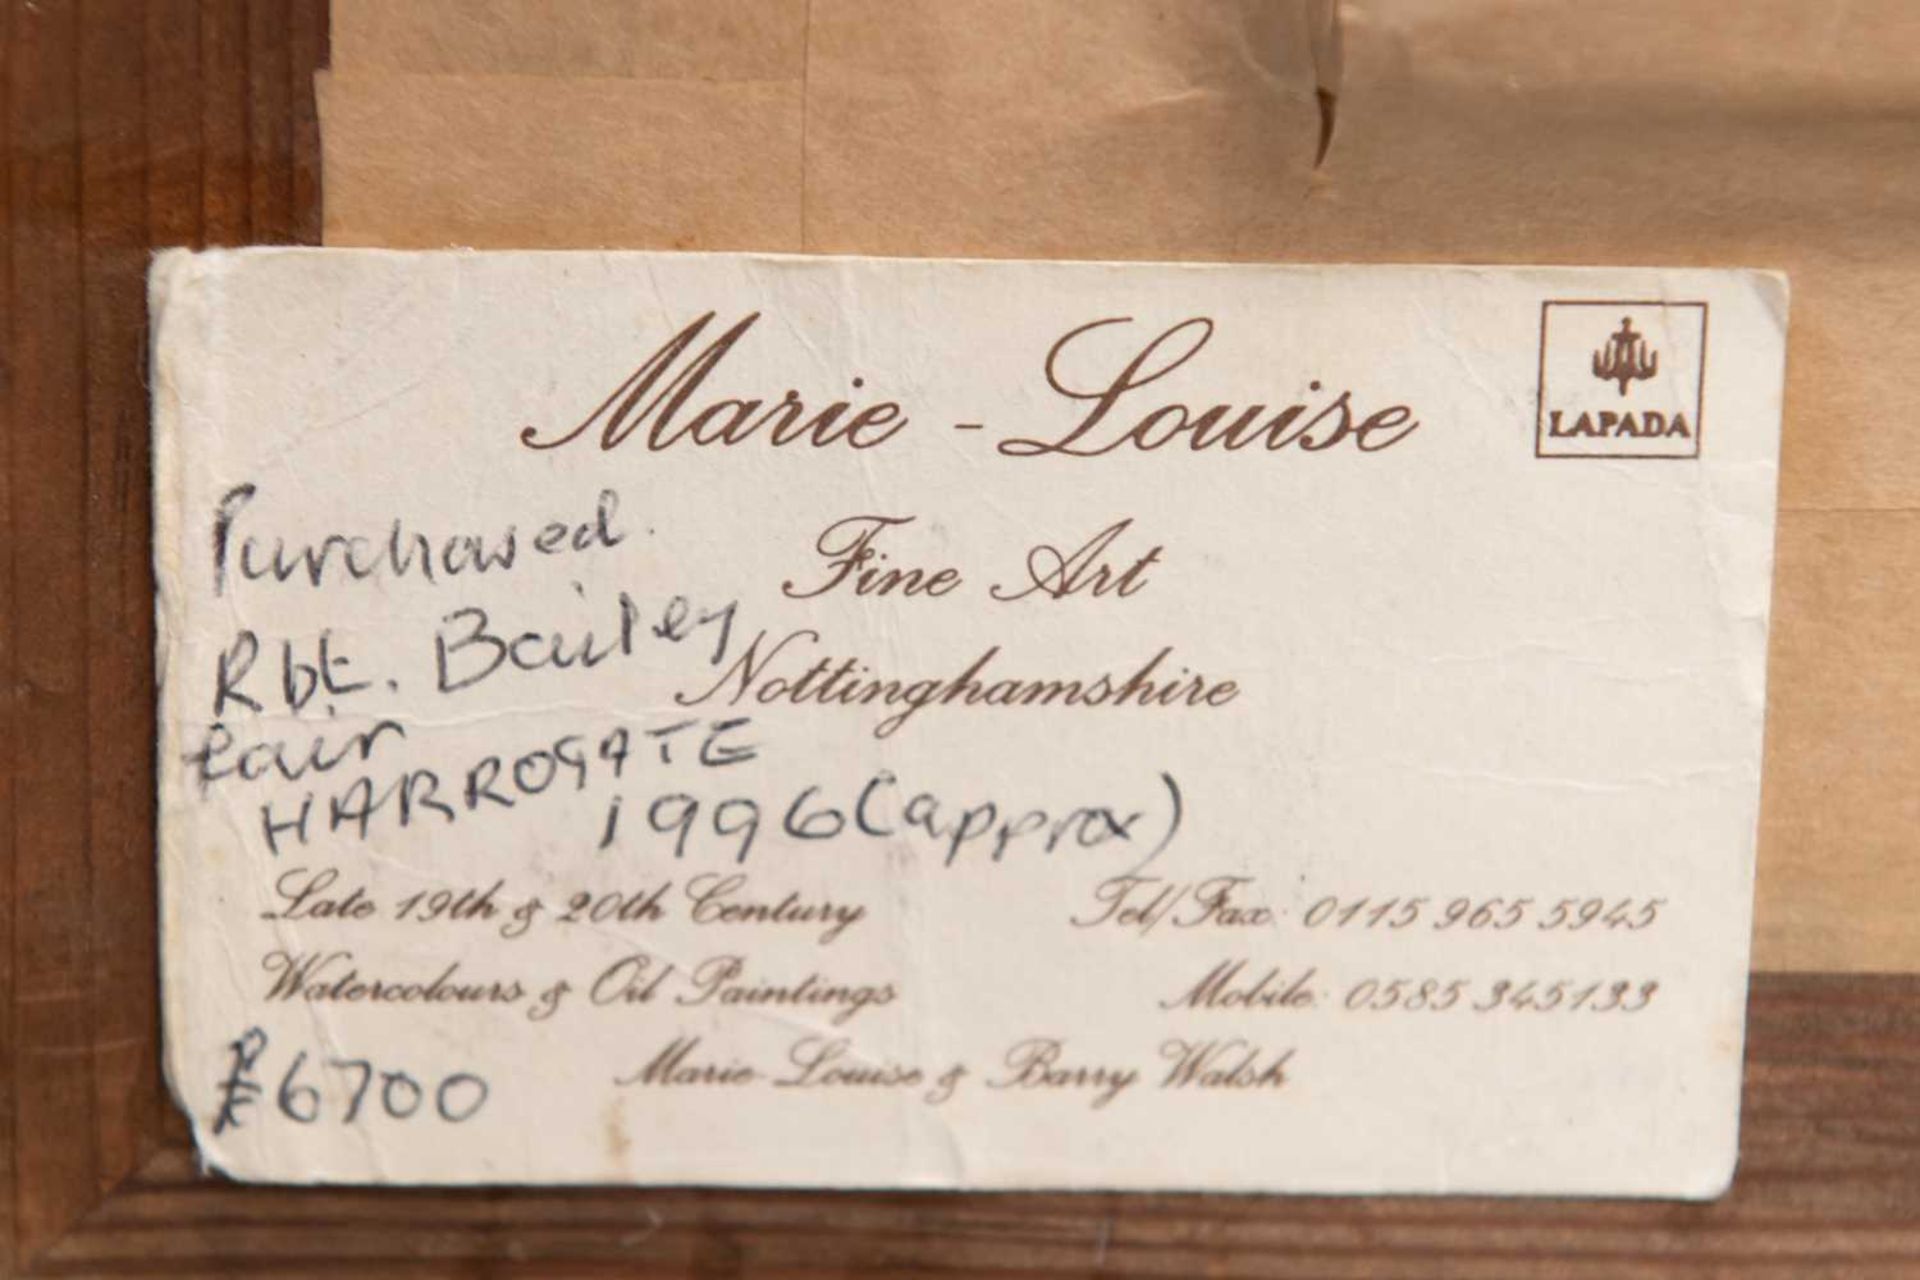 Marie - Louise
LAPADA
Fine Art
Nottinghamshire
Purchased.
Rbt. Bailey
fair
HARROGATE
1996 (approx)
Late 19th & 20th Century
Watercolours & Oil Paintings
Tel/Fax: 0115 965 5945
Mobile: 0585 345133
Marie-Louise & Barry Walsh
£6700